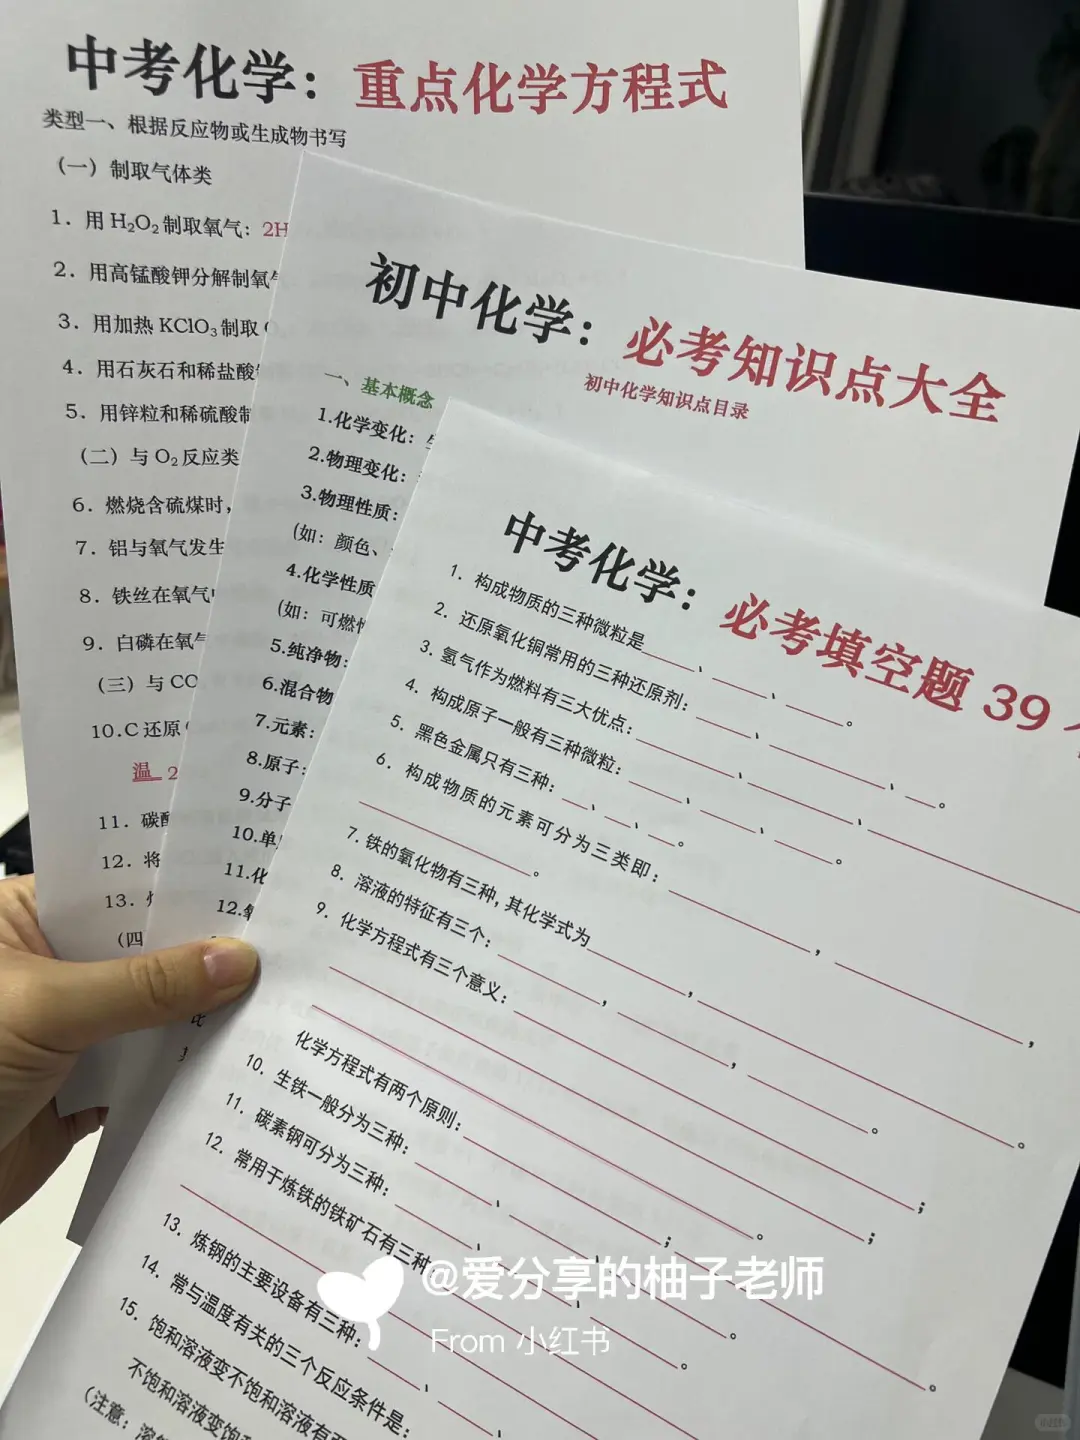 中考化学：重点化学方程式
类型一、根据反应物或生成物书写
（一）制取气体类
1．用 H₂O₂ 制取氧气：2H
2．用高锰酸钾分解制氧
3．用加热 KClO₃ 制取
4．用石灰石和稀盐酸
5．用锌粒和稀硫酸制
（二）与 O₂ 反应类
6．燃烧含硫煤时，
7．铝与氧气发生
8．铁丝在氧气
9．白磷在氧
（三）与 CO
10.C 还原
温 2
11．碳
12．将
13．
（四
初中化学：必考知识点大全
初中化学知识点目录
一、基本概念
1.化学变化：
2.物理变化：
3.物理性质：
(如：颜色、
4.化学性质
(如：可燃性
5.纯净物：
6.混合物
7.元素：
8.原子：
9.分子
10.单
11.化
12.氧
中考化学：必考填空题 39
1．构成物质的三种微粒是____、____、____。
2．还原氧化铜常用的三种还原剂：____、____、____。
3．氢气作为燃料有三大优点：____、____、
4．构成原子一般有三种微粒：____、____、____。
5．黑色金属只有三种：____、____、____。
6．构成物质的元素可分为三类即：____，____，
____。
7．铁的氧化物有三种，其化学式为____，____，
8．溶液的特征有三个：____，____，____。
9．化学方程式有三个意义：____；
____；
____。
化学方程式有两个原则：____；
10．生铁一般分为三种：____、
11．碳素钢可分为三种：____、
12．常用于炼铁的铁矿石有三种，
____。
13．炼钢的主要设备有三种：____、
14．常与温度有关的三个反应条件是：
15．饱和溶液变不饱和溶液有
不饱和溶液变饱
（注意：溶
@爱分享的柚子老师
From 小红书